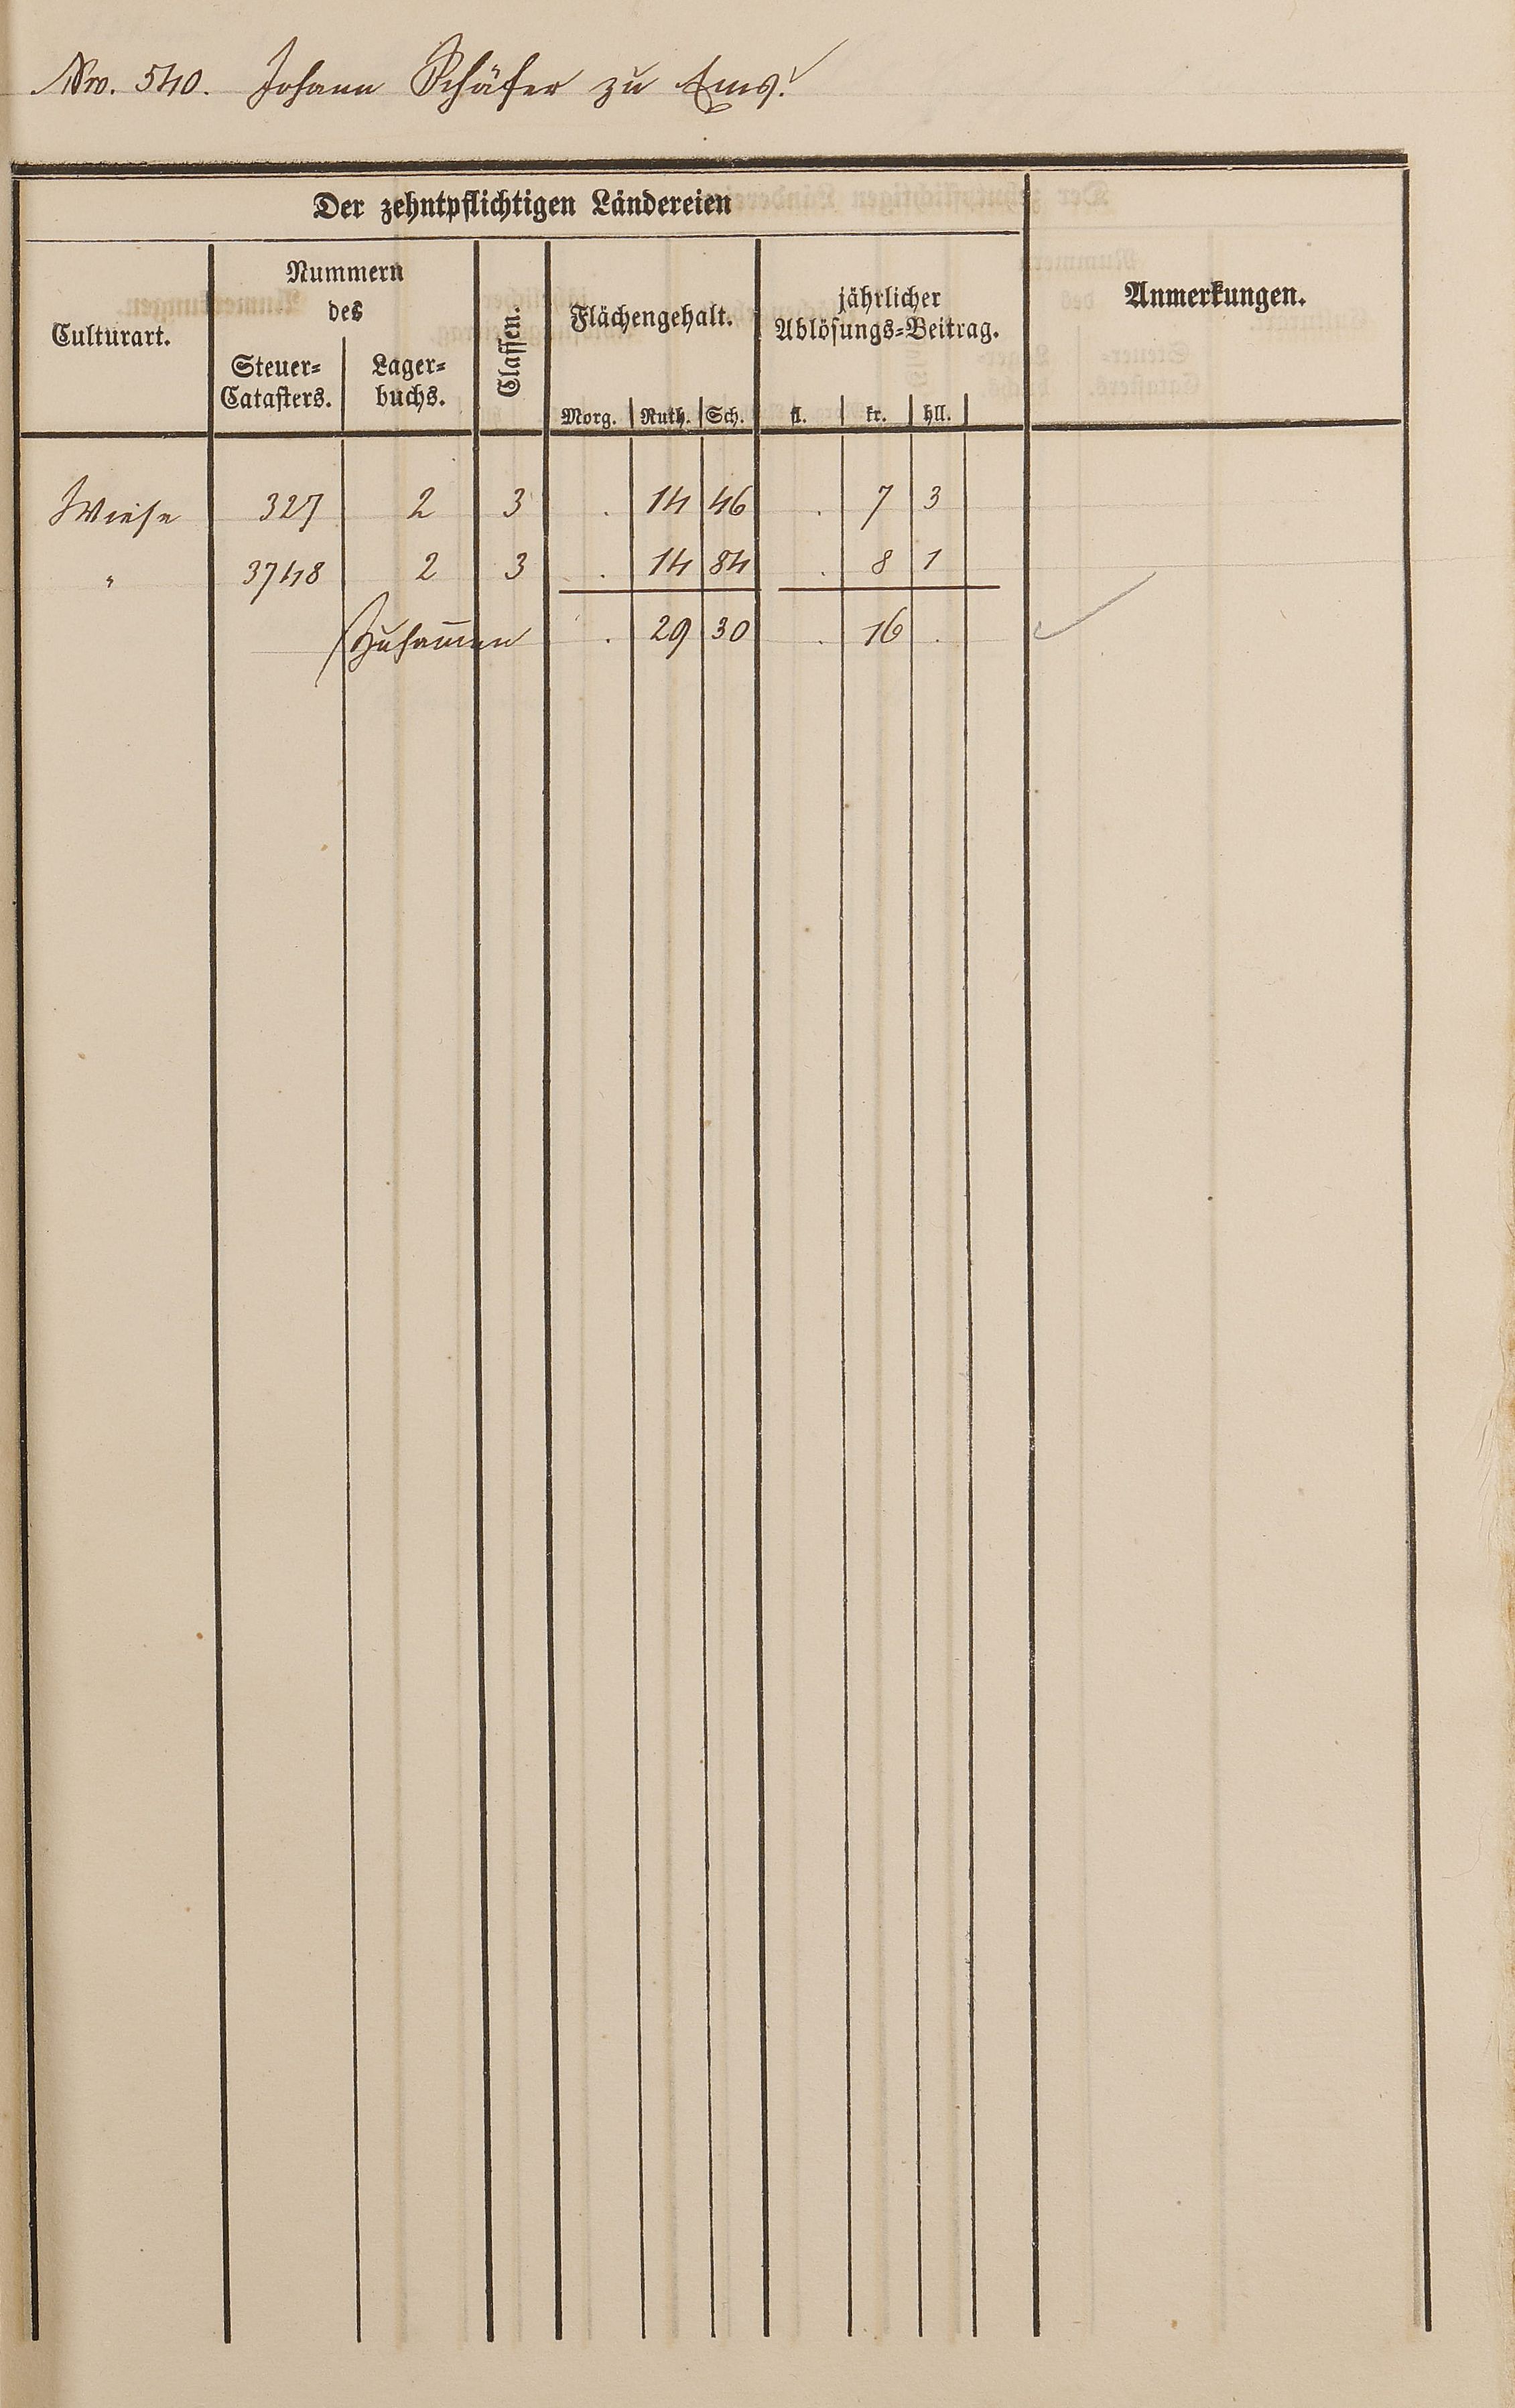 Nro. 540. Johann Schäfer zu Ems.
Der zehntpflichtigen Ländereien
Culturart.
Nummern
des
Steuer-
Catasters.
Lager-
buchs.
Classen.
Flächengehalt.
Morg. Ruth. Sch.
jährlicher
Ablösungs-Beitrag.
fl. kr. hll.
Anmerkungen.
Wiese 327 2 3 . 14 46 . 7 3
" 3748 2 3 . 14 84 . 8 1
Zusam̅en . 29 30 . 16 .